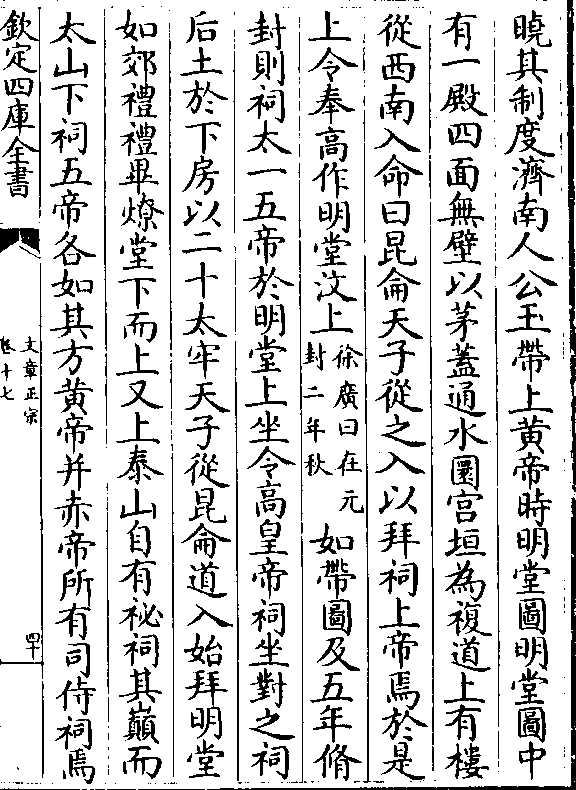 曉其制度濟南人公玉帶上黄帝時明堂圖明堂圖中
有一殿四面無壁以茅蓋通水圜宫垣為複道上有樓
從西南入命曰昆侖天子從之入以拜祠上帝焉於是
上令奉髙作明堂汶上徐廣曰在元封二年秋如帶圖及五年脩
封則祠太一五帝於明堂上坐令髙皇帝祠坐對之祠
后土於下房以二十太牢天子從昆侖道入始拜明堂
如郊禮禮畢燎堂下而上又上泰山自有祕祠其巔而
太山下祠五帝各如其方黄帝并赤帝所有司侍祠焉
欽定四庫全書
文章正宗
卷十七
四十